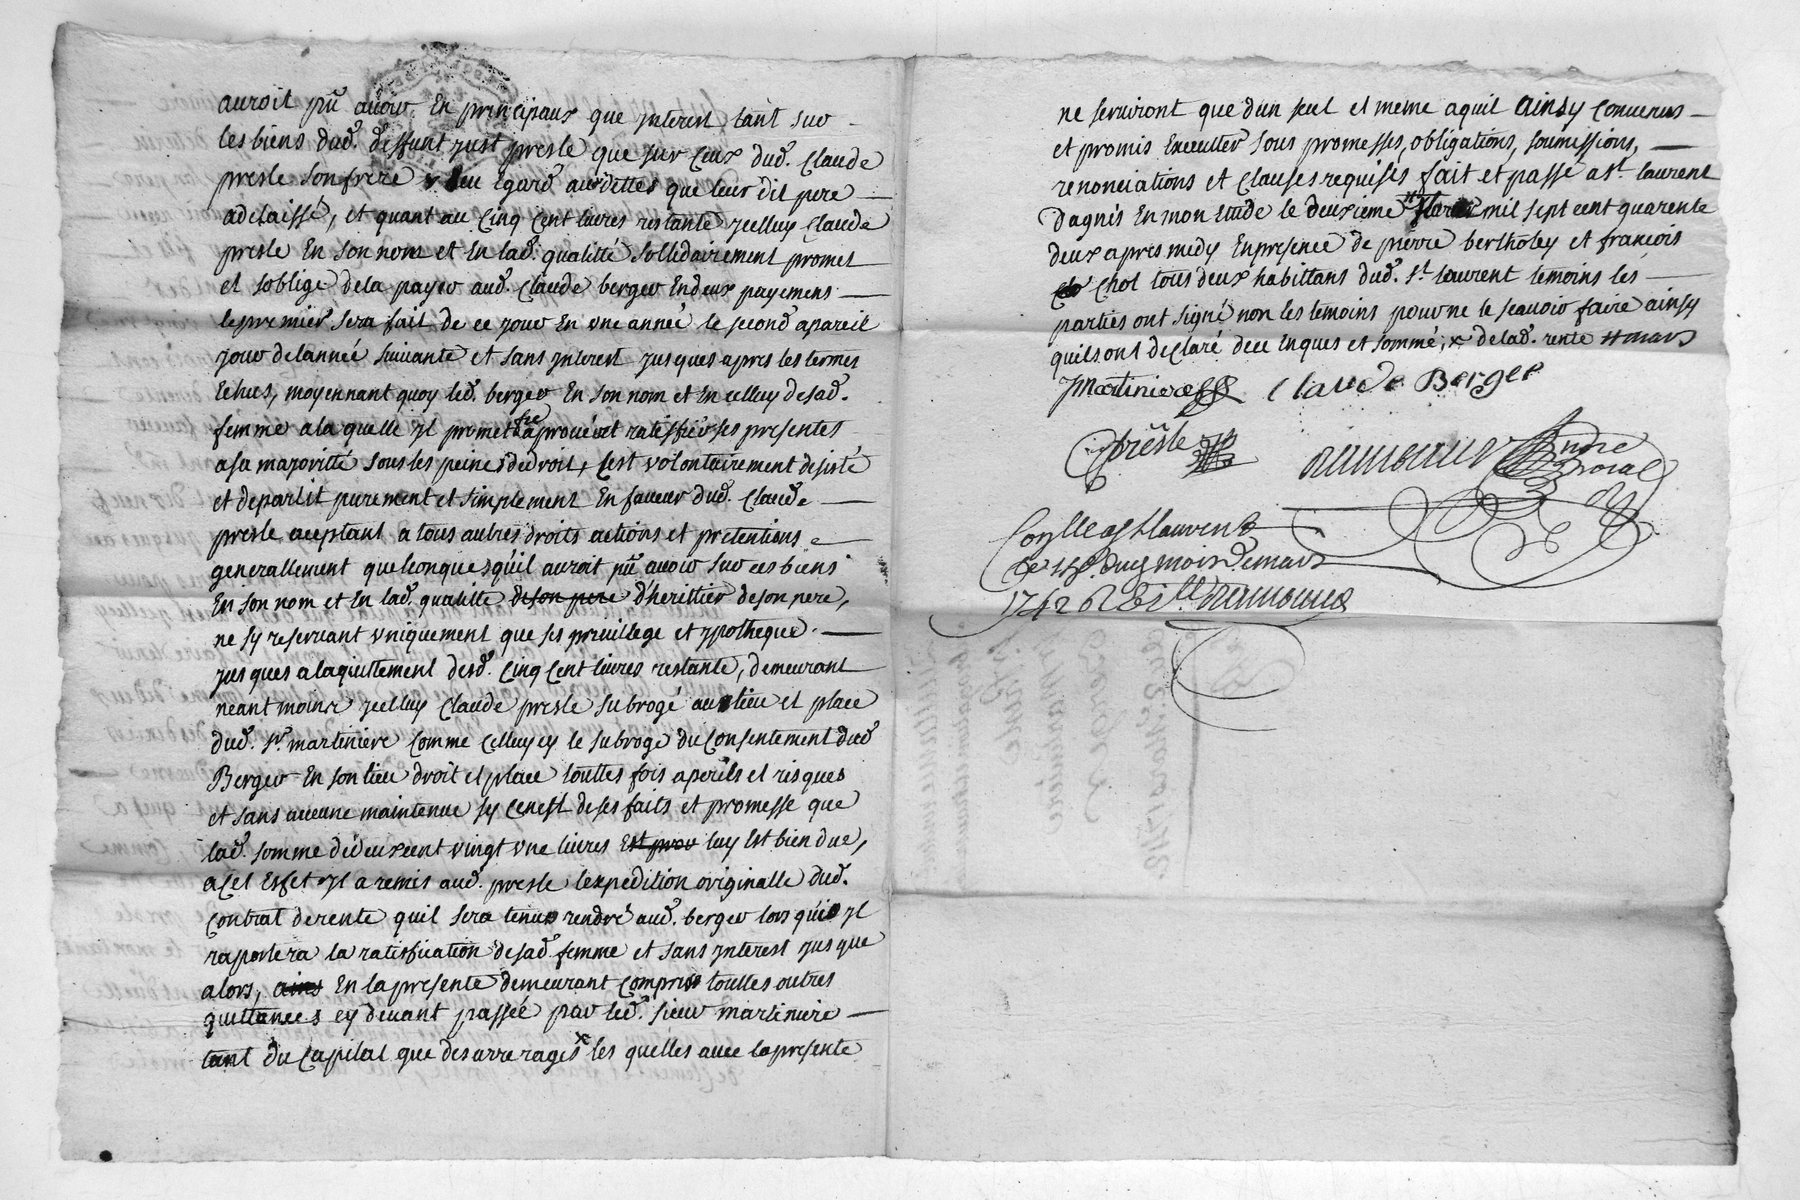 auroit pû avoir En principaux que jnterest tant sur
les biens dud. deffunt just presle que sur Ceux dud. Claude
presle son frere Eu Egard aux dettes que leur dit pere
adelaissé, et quant au Cinq Cent livres restante jcelluy Claude
presle En son nom et En lad. qualitté sollidairement promet
et soblige de la payer aud. Claude berger En deux payemens
le premier sera fait de ce jour En une année le second apareil
jour delannée suivante et sans jnterest jusques apres les termes
Echus, moyennant quoy led. berger En son nom et En celluy de sad.
femme a la quelle jl promet fre aprouver et ratiffier ses presentes
a sa majoritté sous les peines de droit, sest volontairement desisté
et departit purement et simplement En faveur dud. Claude
presle aceptant a tous autres droits actions et pretentions
generallement quelconques quil auroit pû avoir sur ces biens
En son nom et En lad. qualitté de son pere d'herittier de son pere,
ne sy reservant uniquement que ses privillege et ypotheque
jusques a laquittement desd. Cinq Cent livres restante, demeurant
neantmoins jcelluy Claude presle subrogé au lieu et place
dud. sr. martiniere Comme Celluy cy le subroge du Consentement dud
Berger En son lieu droit et place touttes fois aperils et risques
et sans aucune maintenue sy Ce nest de ses faits et promesse que
lad. somme de deux cent vingt une livres Est pour luy Est bien due,
a Cet Effet jl a remis aud. presle lexpedition originalle dud.
Contrat de rente quil sera tenu rendre aud. berger lors qu'il
raportera la ratiffication de sad. femme et sans jnterest jusque
alors, ains En la presente demeurant Compris touttes autres
quittances cy devant passée par led. sieur martiniere
tant du Capital que des arrerages x les quelles avec la presente
ne serviront que dun seul et meme aquit ainsy Convenus
et promis Executter sous promesses, obligations, soumissions,
renonciations et Clauses requises fait et passé a St. laurent
Dagnis En mon Etude le deuxieme mil sept cent quarente
deux apres midy En presence de pierre bertholey et francois
Chol tous deux habittans dud. St. laurent temoins les
parties ont signé non les temoins pour ne le scavoir faire ainsy
quils ont declaré de ce Enques et sommé, x de lad. rente # mars
JMartiniere Claude Berger
C presle
Andre
1742